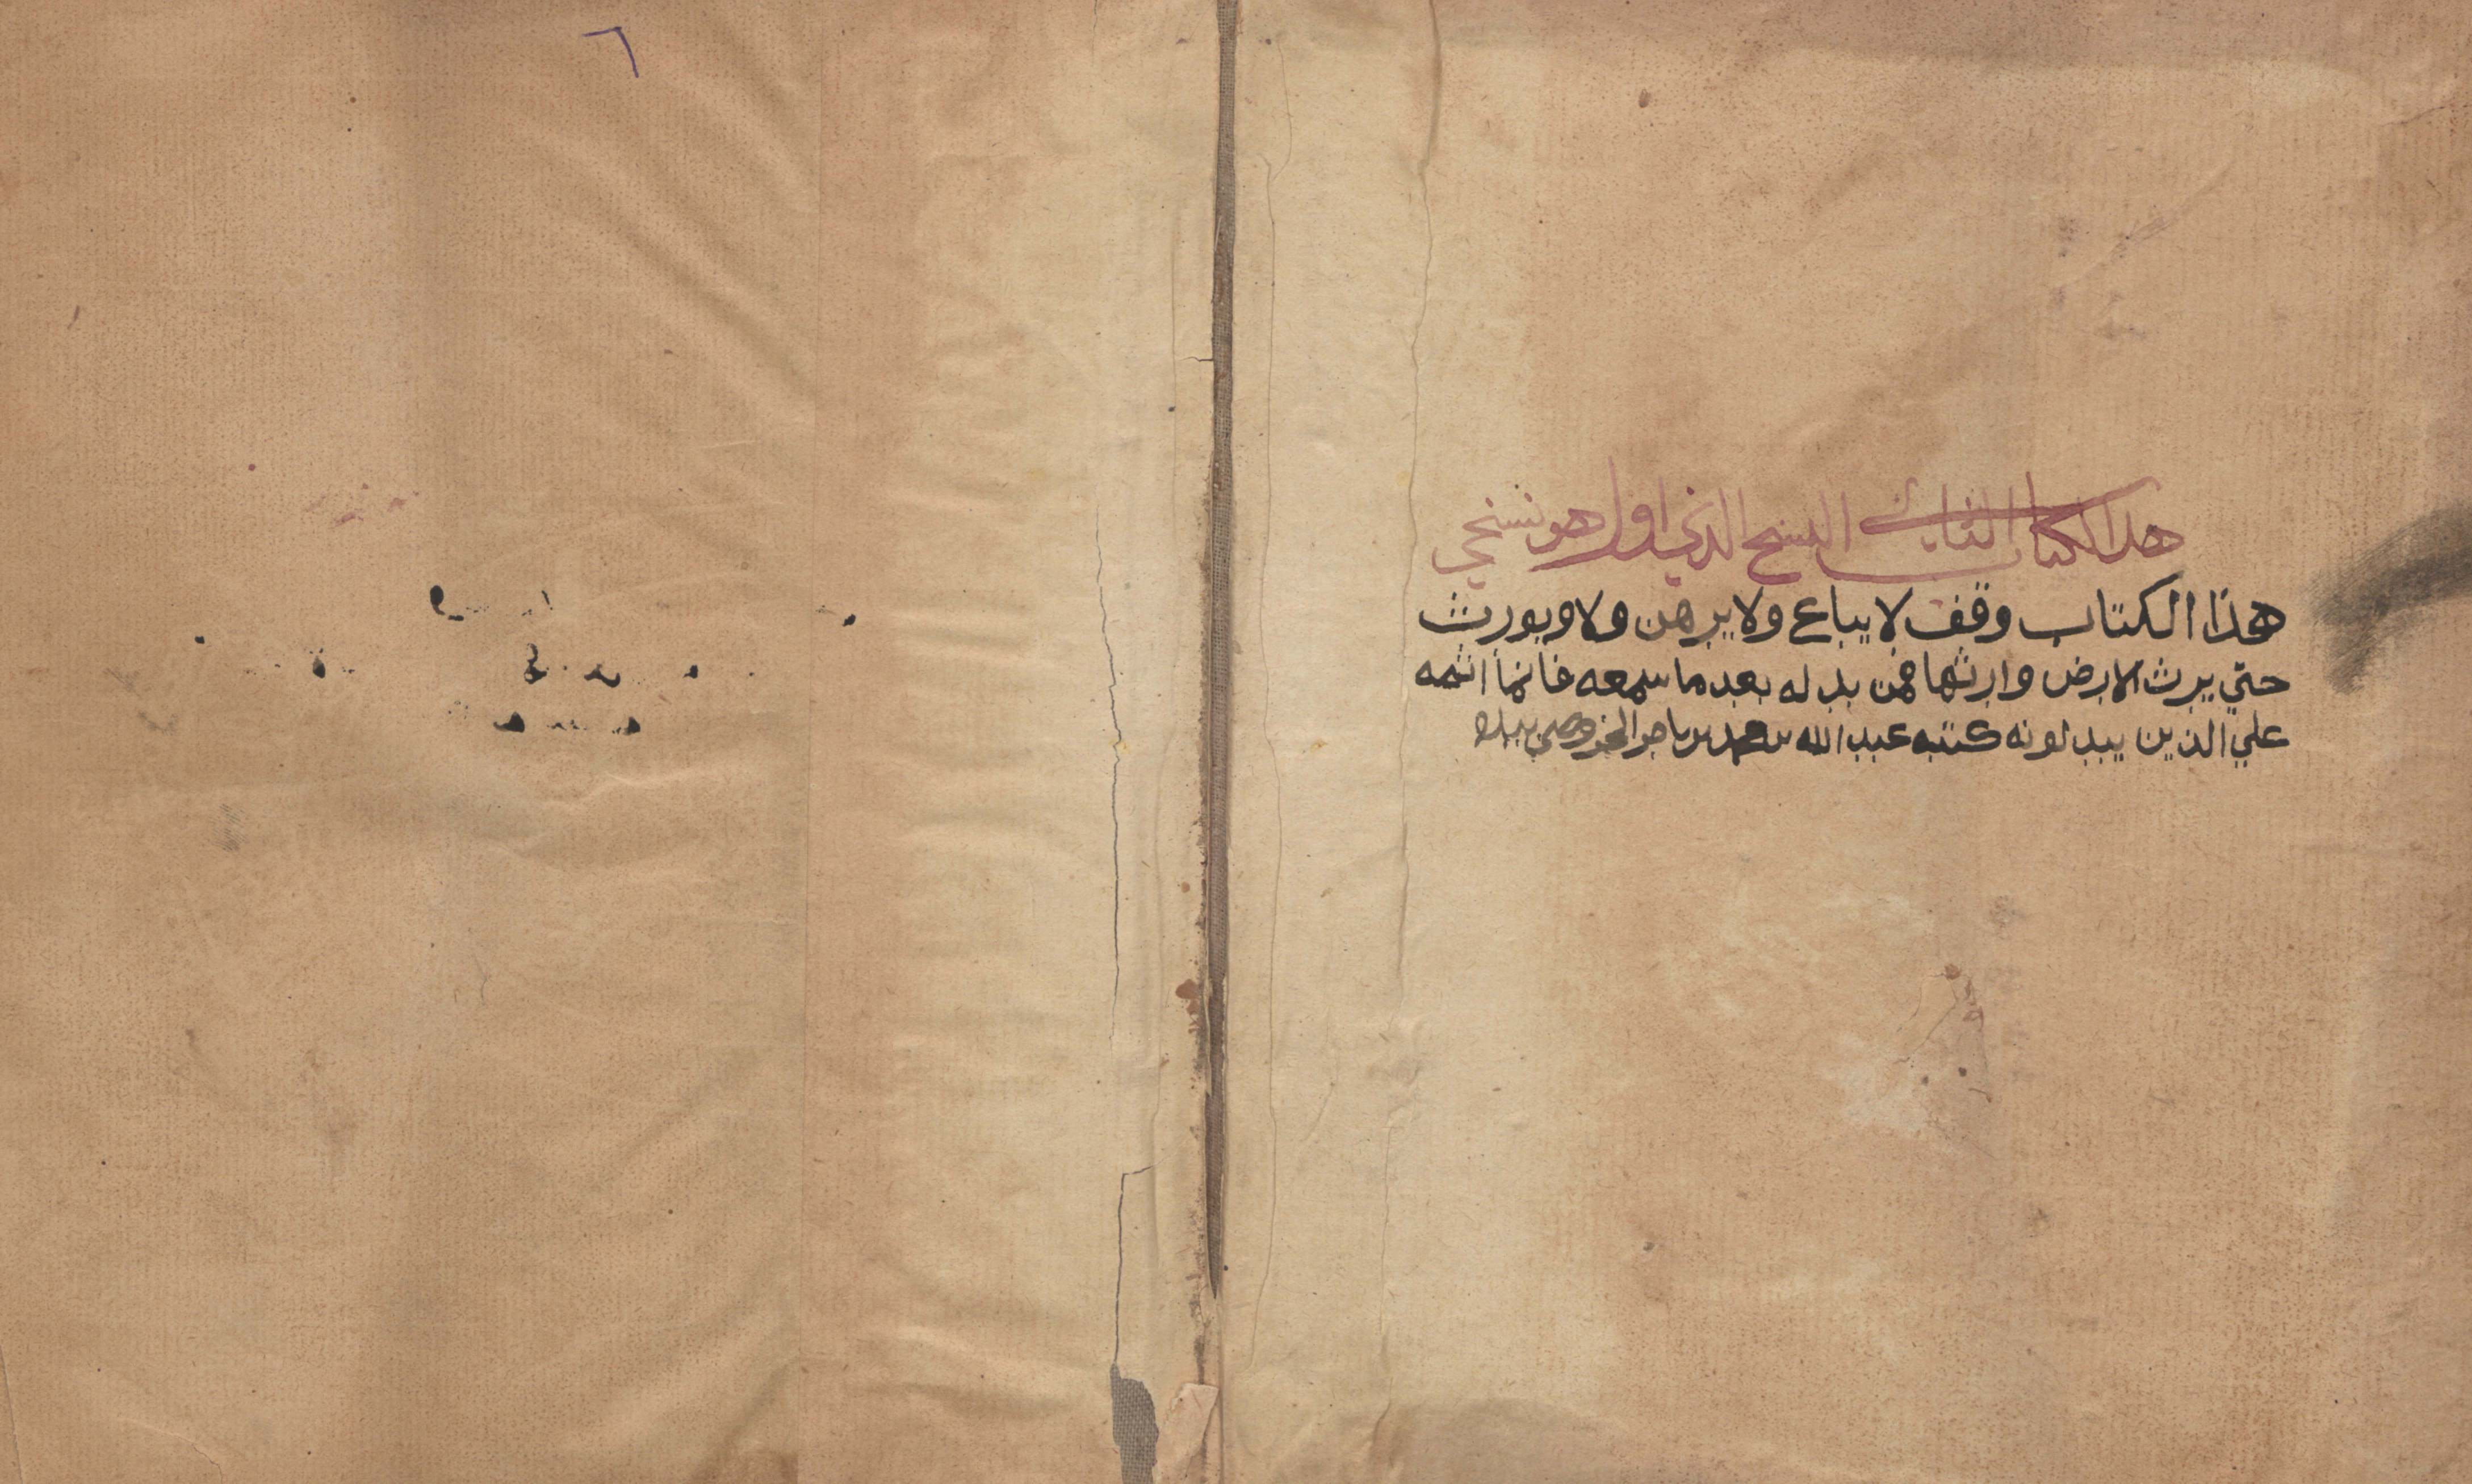 هذا الكتاب الثالث النسخ الذي اول هو نسخي
هذا الكتاب وقف لا يباع ولا يرهن ولا ويورث
حتي يرث الارض وارثها فمن بدله بعد ما سمعه فانما اثمه
علي الذين يبدلونه كتبه عبد الله بن محمد بن ناصر الخروصي بيده
٦